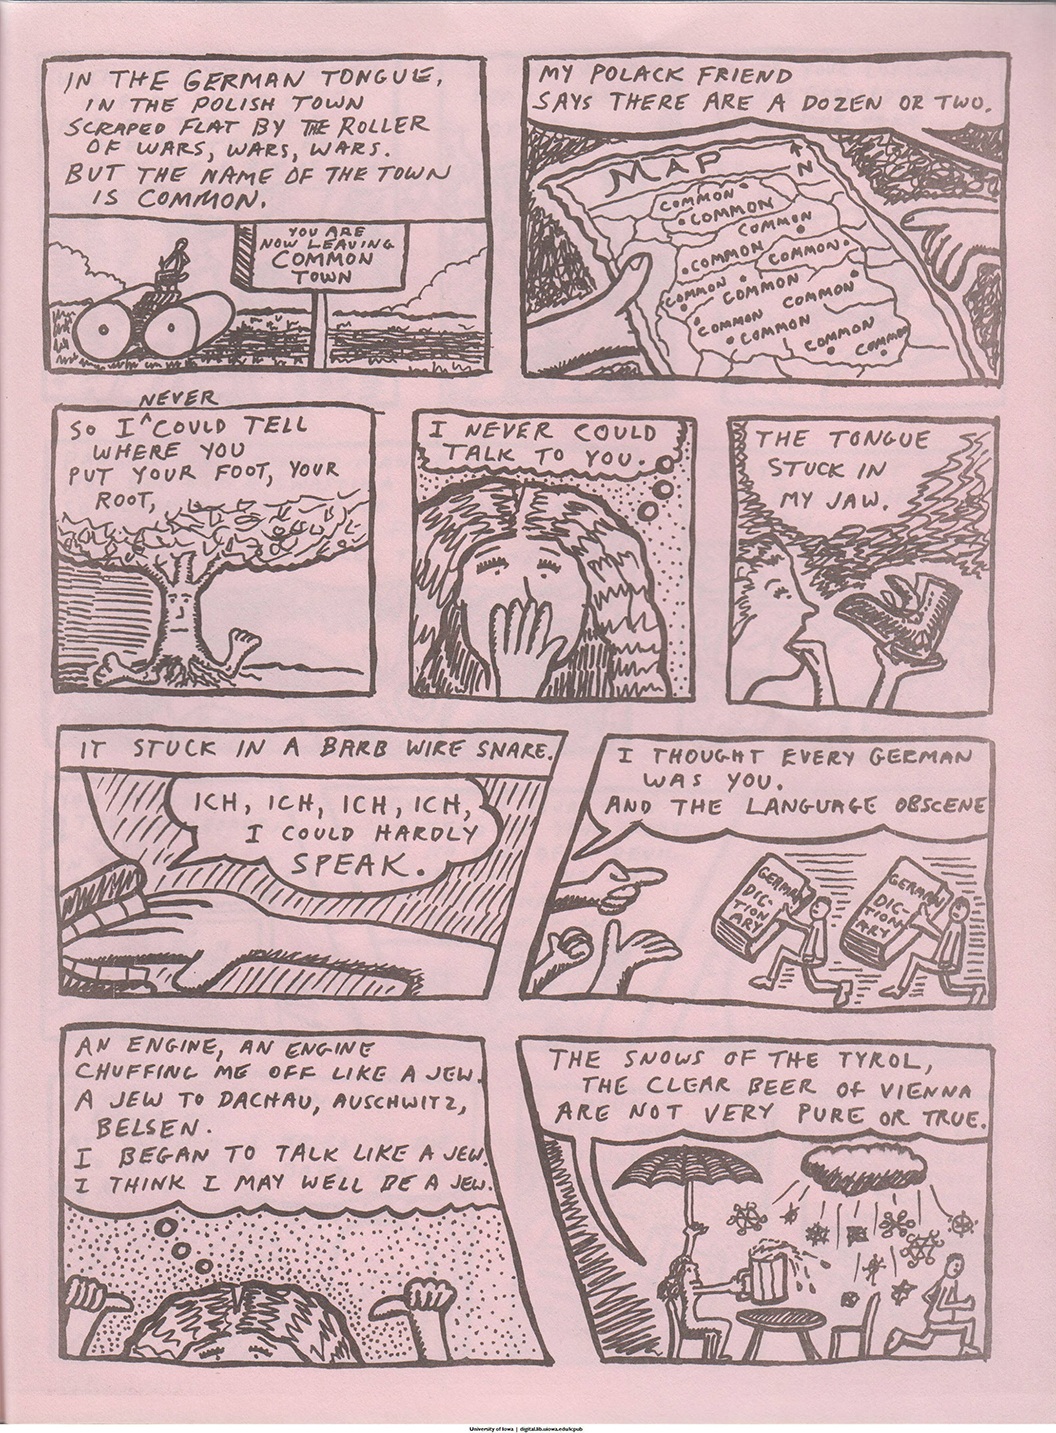 IN THE GERMAN TONGUE,
IN THE POLISH TOWN
SCRAPED FLAT BY THE ROLLER
OF WARS, WARS, WARS.
BUT THE NAME OF THE TOWN
IS COMMON.
YOU ARE
NOW LEAVING
COMMON
TOWN
MY POLACK FRIEND
SAYS THERE ARE A DOZEN OR TWO.
MAP
N
COMMON
COMMON
COMMON
COMMON
COMMON
COMMON
COMMON
COMMON
COMMON
COMMON
COMMON
COMMON
NEVER
SO I ^ COULD TELL
WHERE YOU
PUT YOUR FOOT, YOUR
ROOT,
I NEVER COULD
TALK TO YOU.
THE TONGUE
STUCK IN
MY JAW.
IT STUCK IN A BARB WIRE SNARE.
ICH, ICH, ICH, ICH,
I COULD HARDLY
SPEAK.
I THOUGHT EVERY GERMAN
WAS YOU.
AND THE LANGUAGE OBSCENE
GERMAN
DIC-
TION
ARY
GERMAN
DIC-
TION
ARY
AN ENGINE, AN ENGINE
CHUFFING ME OFF LIKE A JEW.
A JEW TO DACHAU, AUSCHWITZ,
BELSEN.
I BEGAN TO TALK LIKE A JEW.
I THINK I MAY WELL BE A JEW.
THE SNOWS OF THE TYROL,
THE CLEAR BEER OF VIENNA
ARE NOT VERY PURE OR TRUE.
University of Iowa | digital.lib.uiowa.edu/icpub